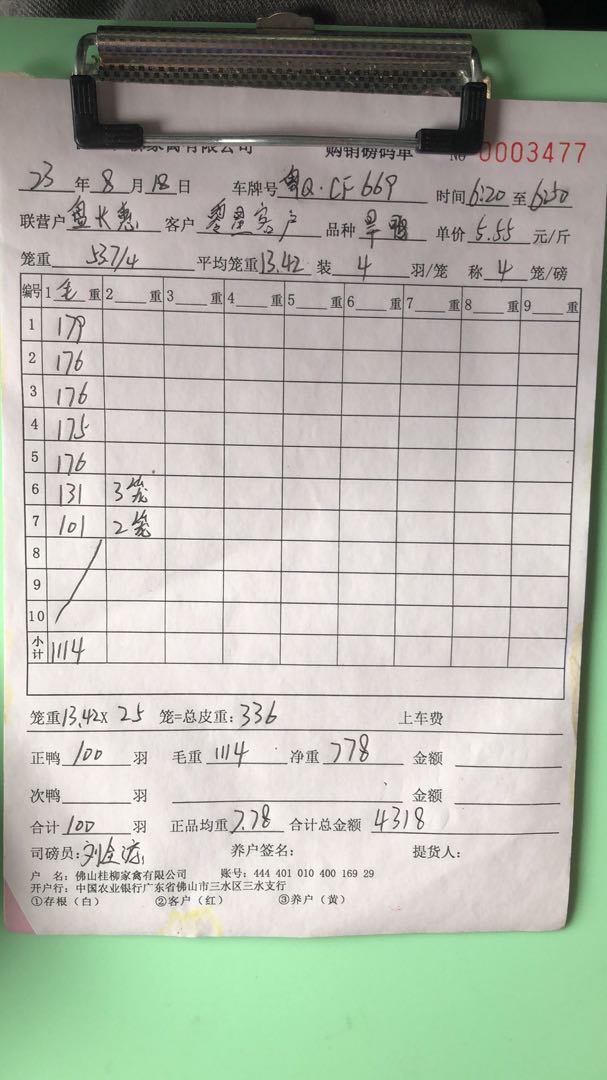 家禽有限公司 购销磅码单 No 0003477
23年8月18日 车牌号 粤Q·CF669 时间6:20至6:50
联营户 客户 客户 品种 旱鸭 单价5.55元/斤
笼重 53.7/4 平均笼重13.42 装 4 羽/笼 称 4 笼/磅
编号 1 毛 重 2 重 3 重 4 重 5 重 6 重 7 重 8 重 9 重
1 179
2 176
3 176
4 175
5 176
6 131 3笼
7 101 2笼
8
9
10
小计 1114
笼重13.42× 25 笼=总皮重: 336 上车费
正鸭 100 羽 毛重 1114 净重 778 金额
次鸭 羽 金额
合计 100 羽 正品均重 7.78 合计总金额 4318
司磅员: 刘 养户签名: 提货人:
户 名: 佛山桂柳家禽有限公司 账号: 444 401 010 400 169 29
开户行: 中国农业银行广东省佛山市三水区三水支行
①存根(白) ②客户(红) ③养户(黄)